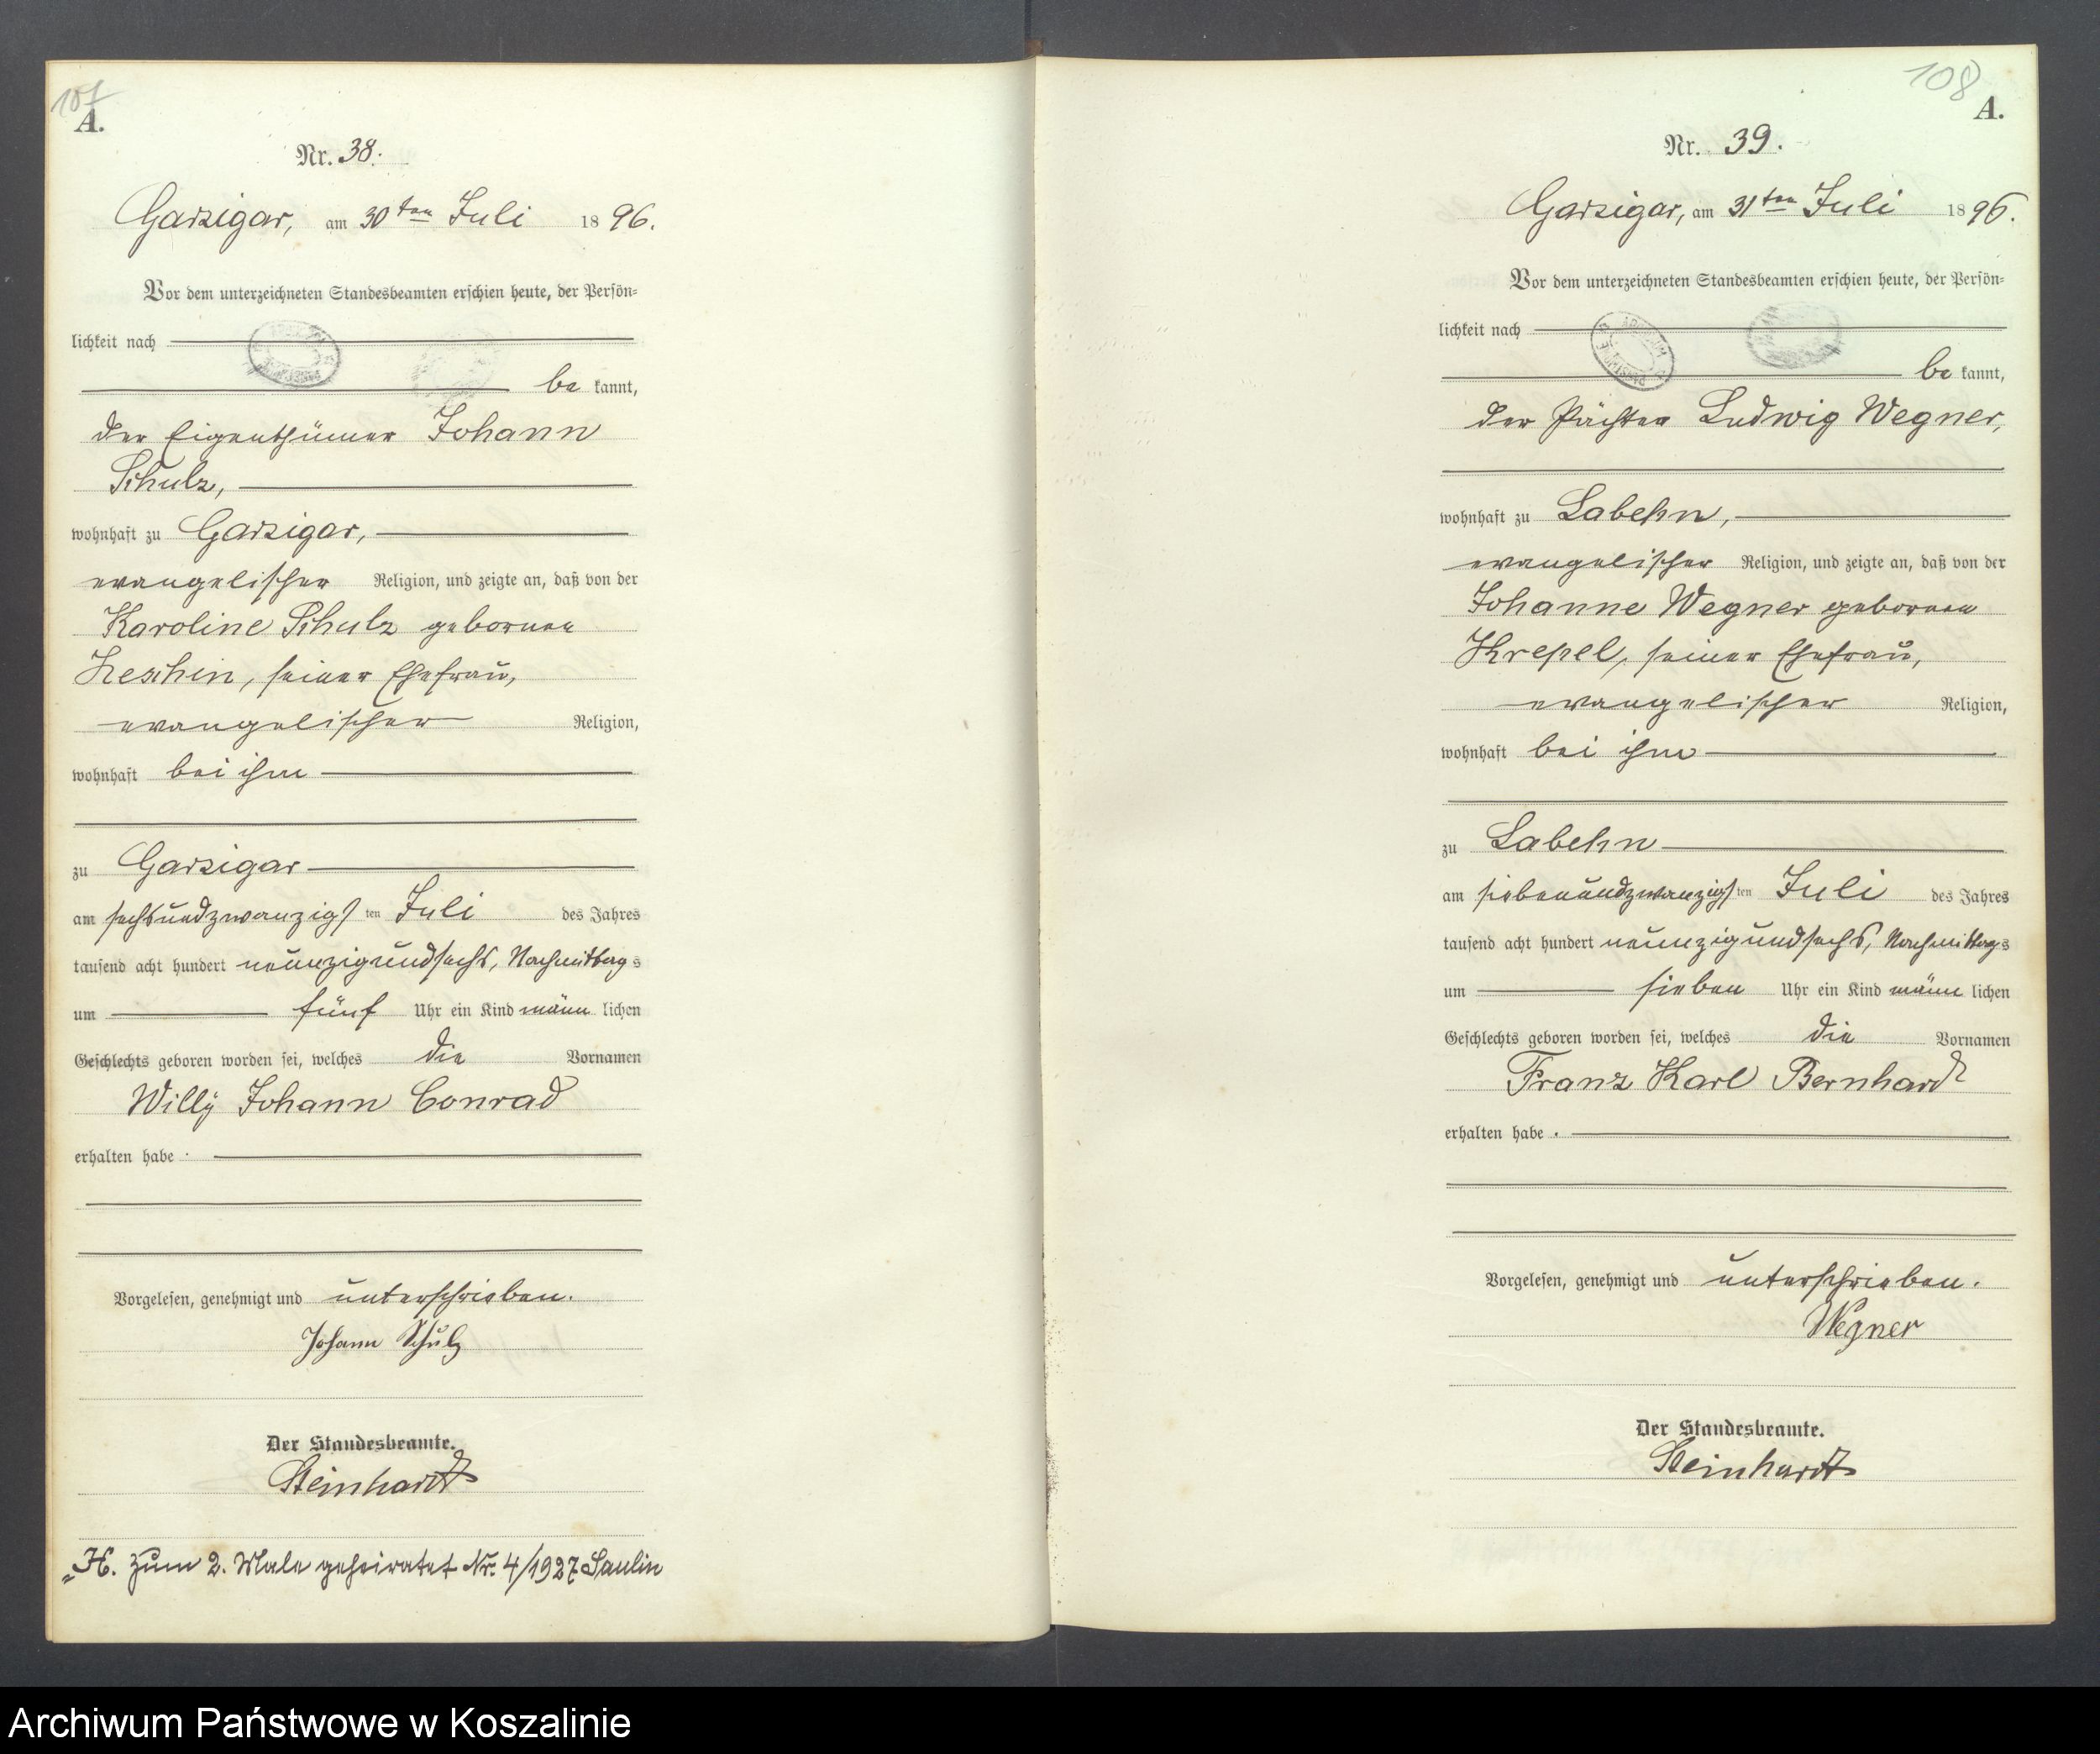 107
A.
Nr. 38.
Garzigar, am 30ten Juli 1896.
Vor dem unterzeichneten Standesbeamten erschien heute, der Persön-
lichkeit nach
be kannt,
der Eigenthümer Johann
Schulz,
wohnhaft zu Garzigar,
evangelischer Religion, und zeigte an, daß von der
Karoline Schulz geborenen
Heschin, seiner Ehefrau,
evangelischer Religion,
wohnhaft bei ihm
zu Garzigar
am sechsundzwanzigsten Juli des Jahres
tausend acht hundert neunzigundsechs, Nachmittags
um fünf Uhr ein Kind männlichen
Geschlechts geboren worden sei, welches die Vornamen
Willy Johann Conrad
erhalten habe.
Vorgelesen, genehmigt und unterschrieben.
Johann Schulz
Der Standesbeamte.
Steinhardt
H. Zum 2. Male geheiratet Nr. 4/1927 Saulin
108
A.
Nr. 39.
Garzigar, am 31ten Juli 1896.
Vor dem unterzeichneten Standesbeamten erschien heute, der Persön-
lichkeit nach
be kannt,
der Pächter Ludwig Wegner,
wohnhaft zu Labehn,
evangelischer Religion, und zeigte an, daß von der
Johanne Wegner geborenen
Krepel, seiner Ehefrau,
evangelischer Religion,
wohnhaft bei ihm
zu Labehn
am siebenundzwanzigsten Juli des Jahres
tausend acht hundert neunzigundsechs, Nachmittags
um sieben Uhr ein Kind männlichen
Geschlechts geboren worden sei, welches die Vornamen
Franz Karl Bernhard
erhalten habe.
Vorgelesen, genehmigt und unterschrieben.
Wegner
Der Standesbeamte.
Steinhardt
Archiwum Państwowe w Koszalinie